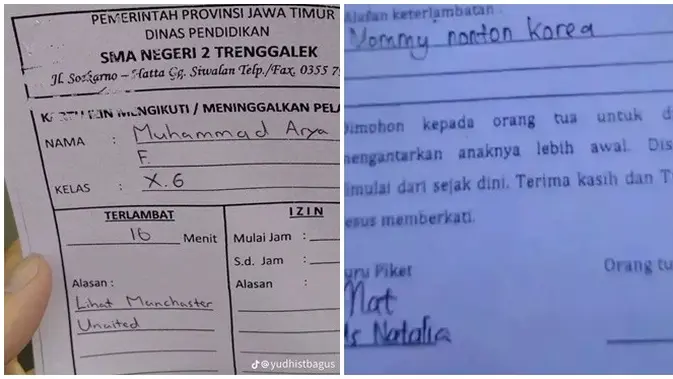 PEMERINTAH PROVINSI JAWA TIMUR
DINAS PENDIDIKAN
SMA NEGERI 2 TRENGGALEK
Jl. Soekarno – Hatta Gg. Siwalan Telp./Fax. 0355 7
IZIN MENGIKUTI / MENINGGALKAN PEL
NAMA : Muhammad Arya
F.
KELAS : X.6
TERLAMBAT
16 Menit
Alasan :
Lihat Manchaster
Unaited
IZIN
Mulai Jam :
S.d. Jam :
Alasan :
@yudhistbagus
Alasan keterlambatan
Mommy nonton Korea
Dimohon kepada orang tua untuk d
mengantarkan anaknya lebih awal. Dis
imulai dari sejak dini. Terima kasih dan T
esus memberkati.
uru Piket
Nat
Ms Natalia
Orang tu